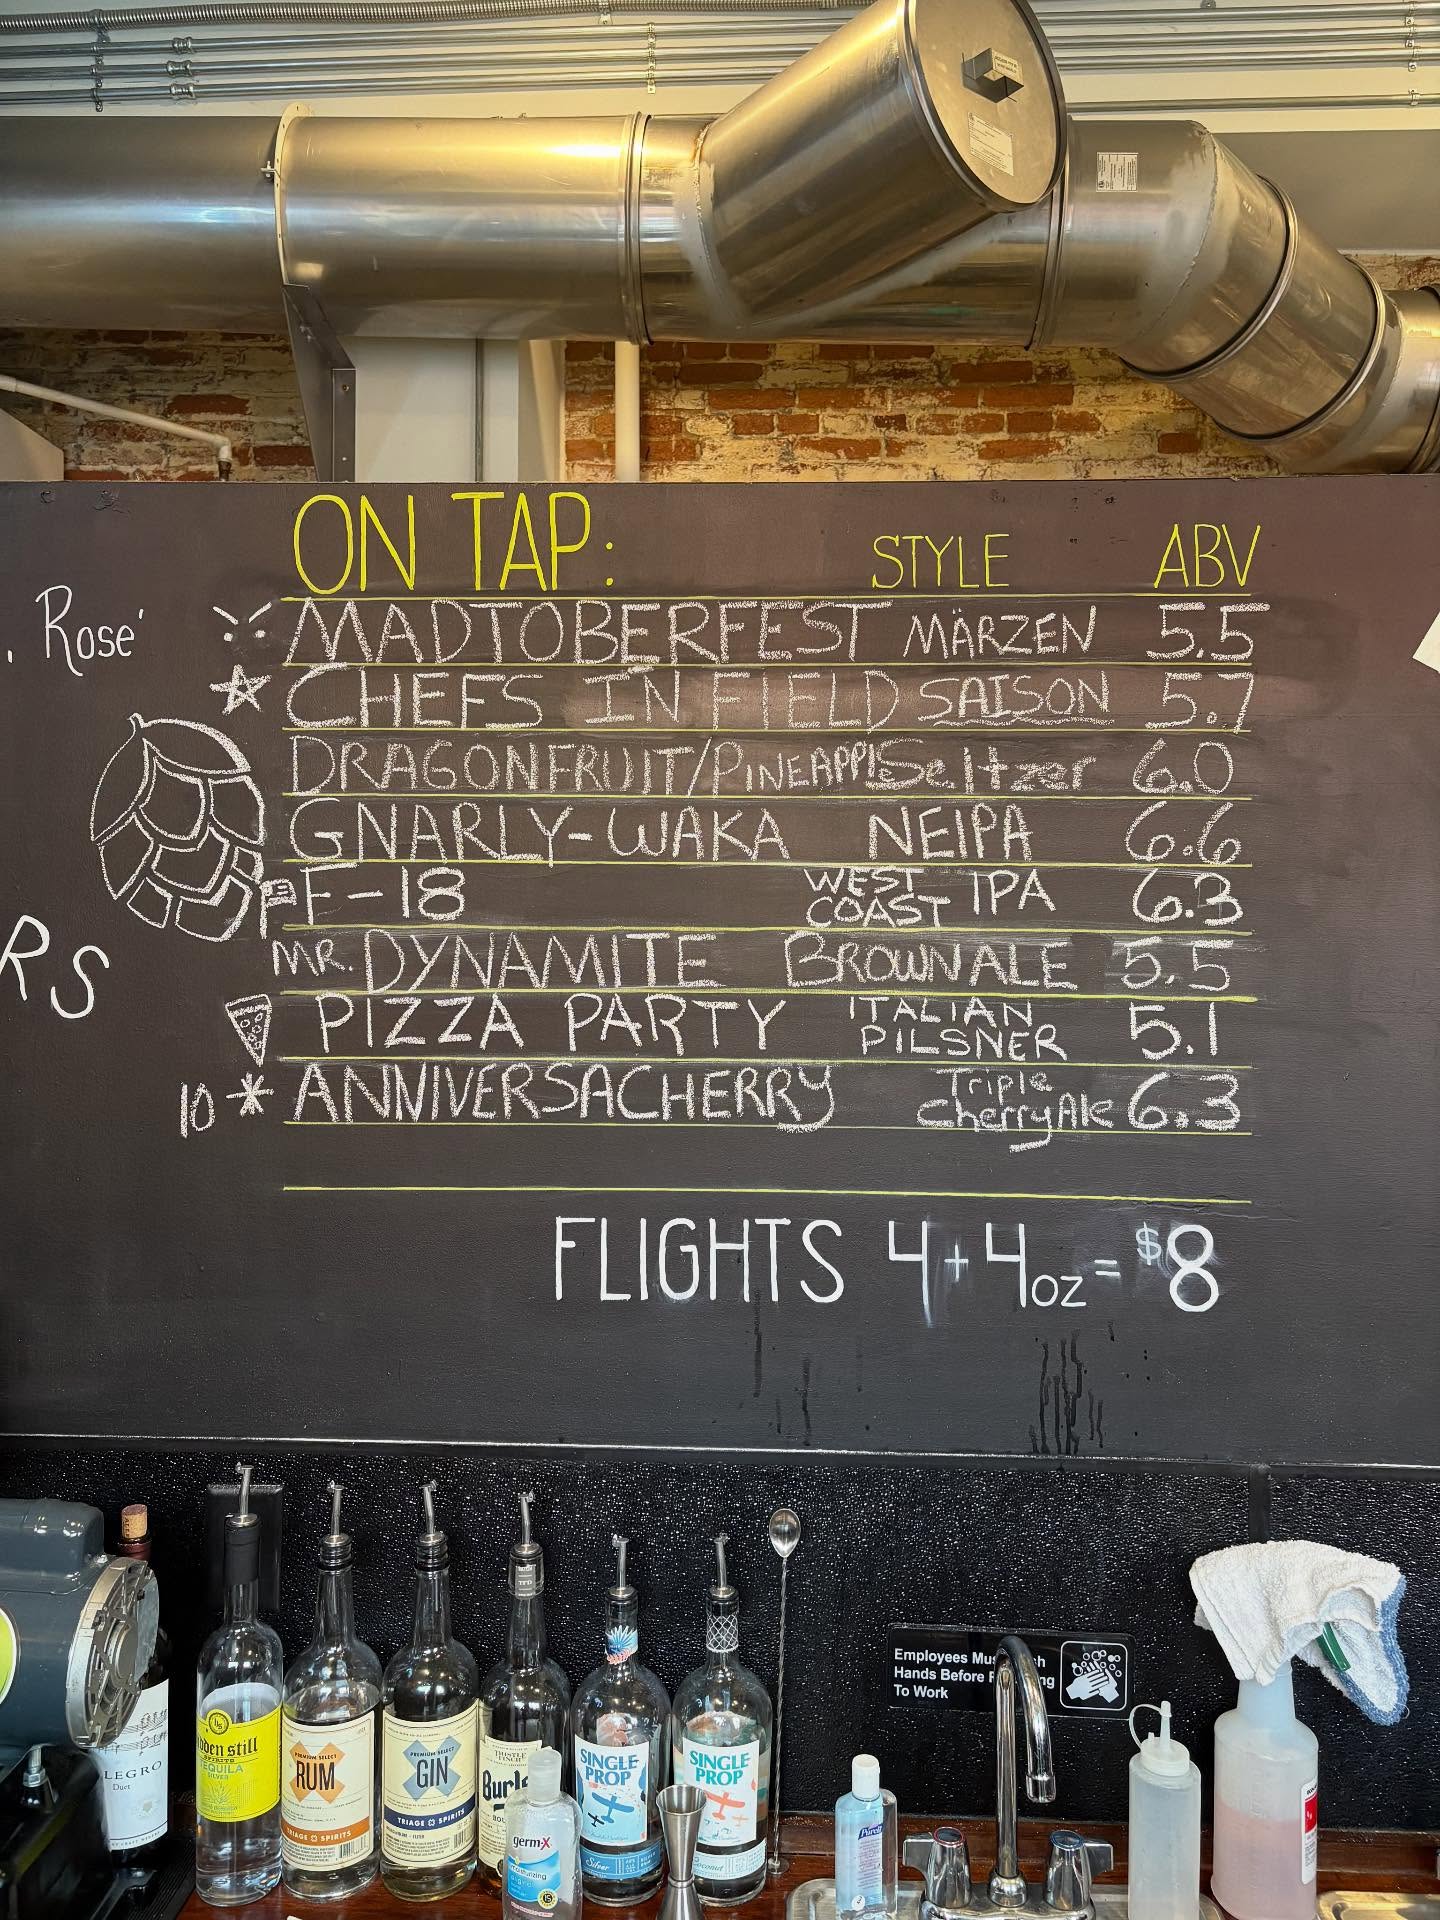 ON TAP: STYLE ABV
Rose'
MADTOBERFEST MÄRZEN 5.5
CHEFS IN FIELD SAISON 5.7
DRAGONFRUIT/PINEAPPLE Seltzer 6.0
GNARLY-WAKA NEIPA 6.6
F-18 WEST COAST IPA 6.3
RS
MR. DYNAMITE BROWN ALE 5.5
PIZZA PARTY ITALIAN PILSNER 5.1
10 * ANNIVERSACHERRY Triple Cherry Ale 6.3
FLIGHTS 4+4oz = $8
Employees Mus sh
Hands Before R ing
To Work
LEGRO
Duet
dden still
SPIRITS
TEQUILA
SILVER
PREMIUM SELECT
RUM
TRIAGE SPIRITS
PREMIUM SELECT
GIN
TRIAGE SPIRITS
THISTLE
FINCH
Burl
germ-X
SINGLE
PROP
Silver
SINGLE
PROP
Coconut
Purell